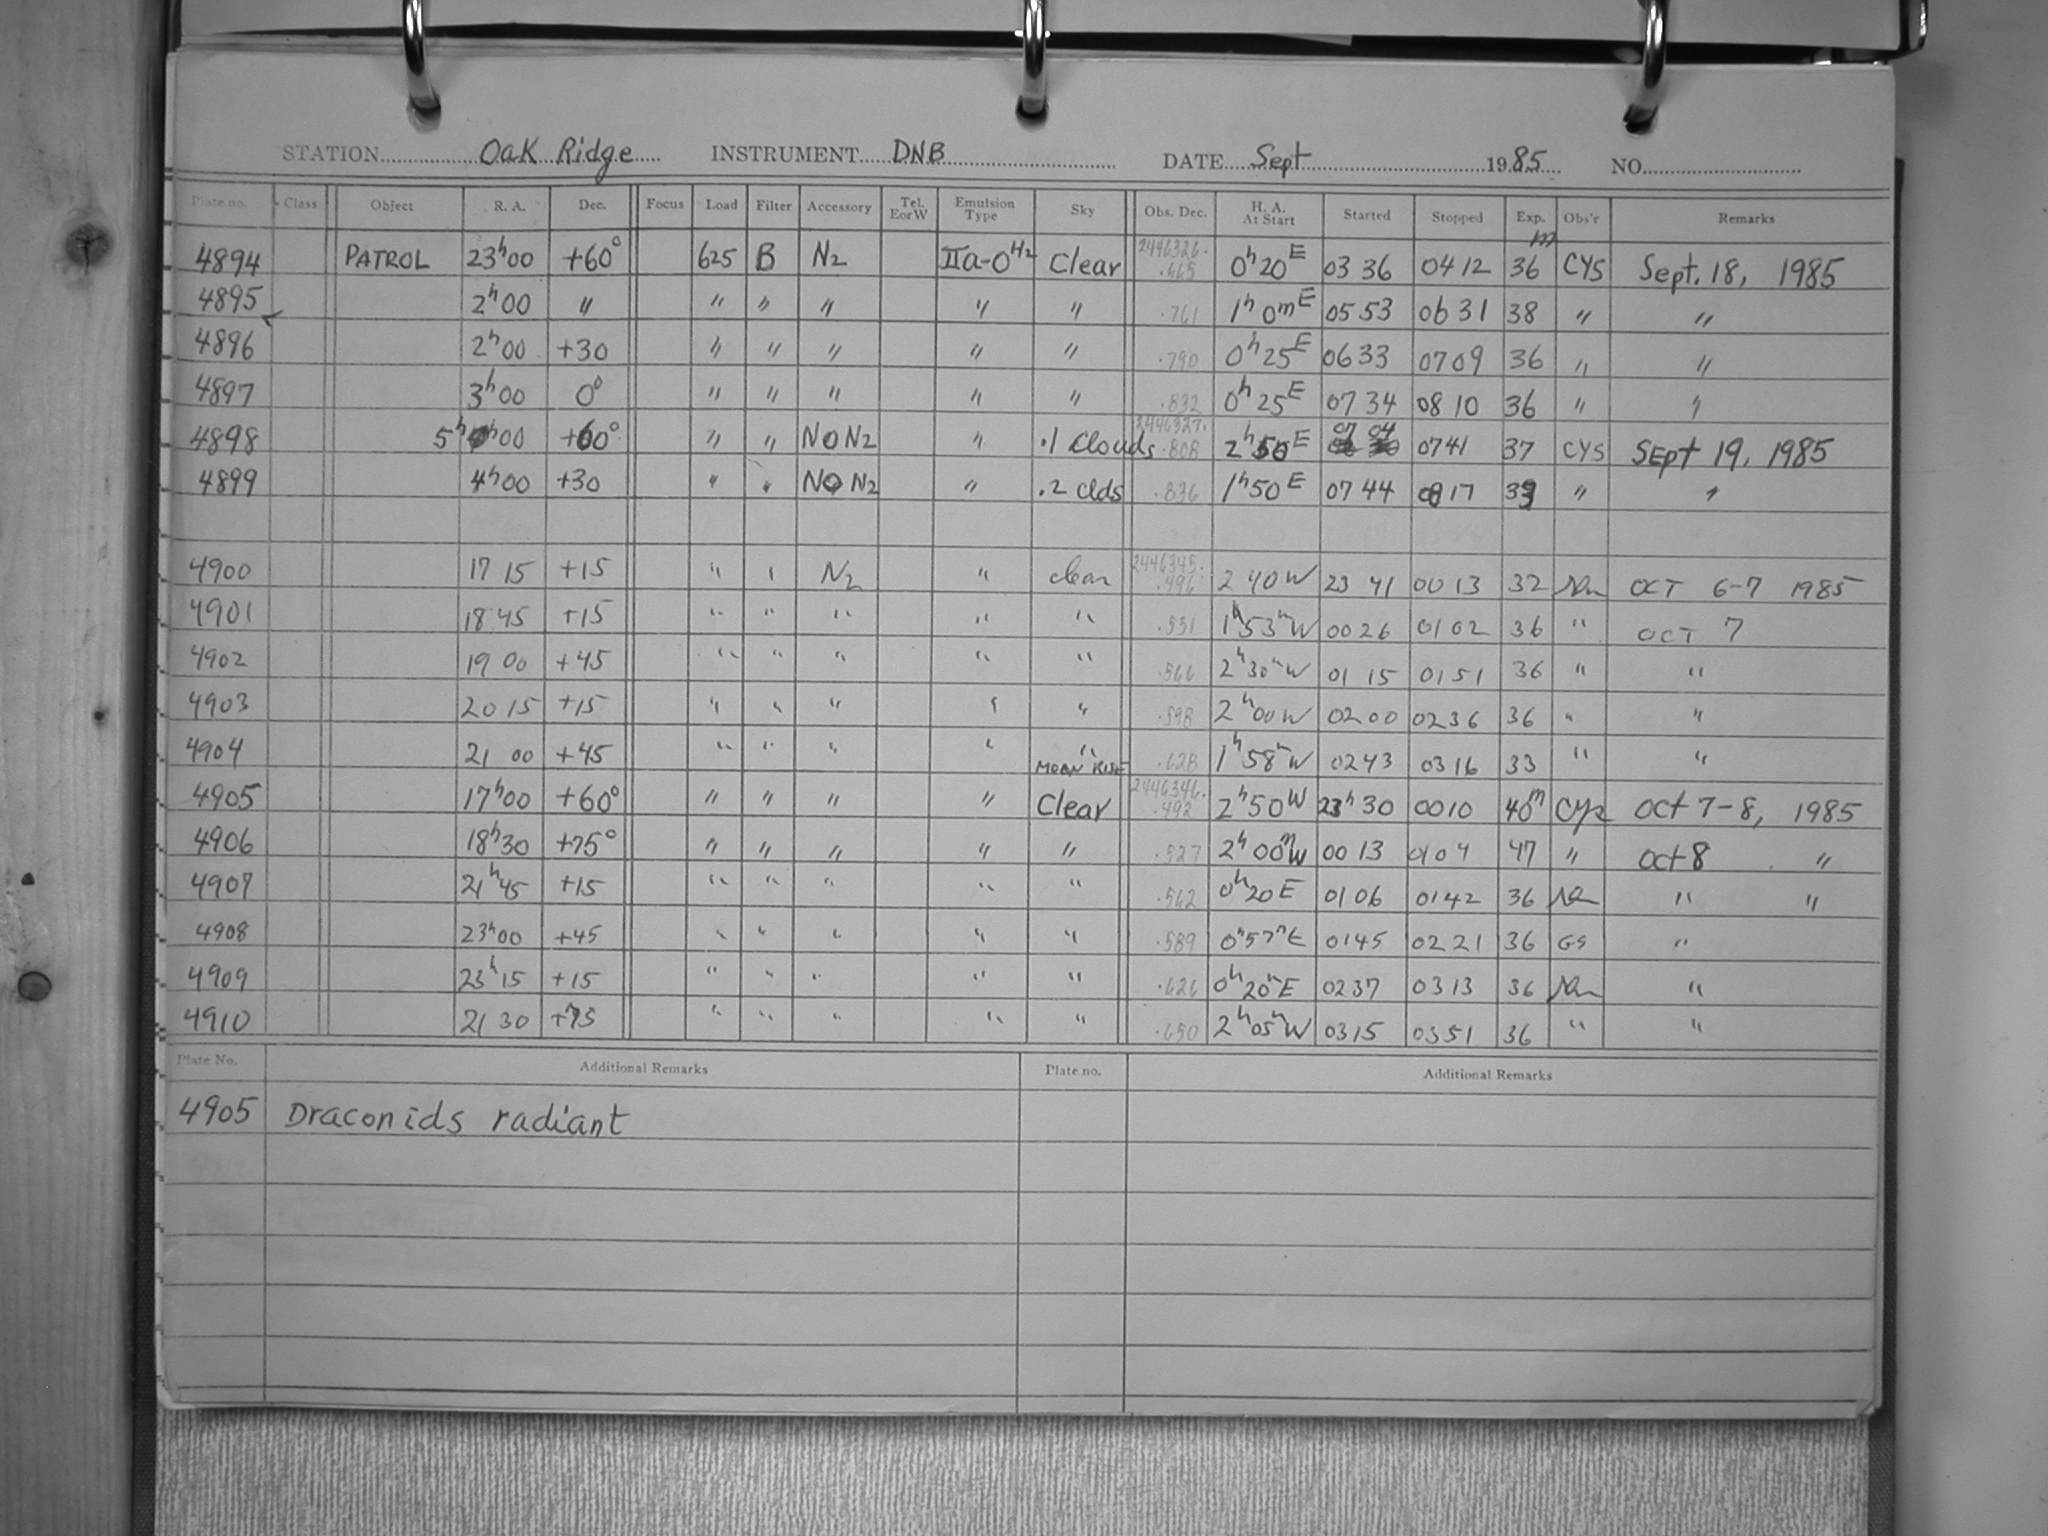 STATION Oak Ridge INSTRUMENT DNB DATE Sept 1985 NO.
Plate no. Class Object R. A. Dec. Focus Load Filter Accessory Tel. EorW Emulsion Type Sky Obs. Dec. H. A. At Start Started Stopped Exp. Obs'r Remarks
4894 PATROL 23h00 +60° 625 B N2 IIa-O H2 Clear 2446326. .665 0h20E 03 36 04 12 36m CYS Sept. 18, 1985
4895 2h00 " " " " " " .761 1h 0mE 05 53 06 31 38 " "
4896 2h00 +30 " " " " " .790 0h25E 06 33 07 09 36 " "
4897 3h00 0° " " " " " .832 0h25E 07 34 08 10 36 " "
4898 5h00 +60° " " NO N2 " .1 Clouds 2446327. .808 2h50E 07 04 0741 37 CYS Sept 19, 1985
4899 4h00 +30 " " NO N2 " .2 clds .836 1h50E 07 44 0817 33 " "
4900 17 15 +15 " " N2 " clear 2446345. .496 2 40W 23 41 00 13 32 OCT 6-7 1985
4901 18 45 +15 " " " " " .531 1h53mW 00 26 0102 36 " OCT 7
4902 19 00 +45 " " " " " .566 2h30mW 01 15 0151 36 " "
4903 20 15 +15 " " " " " .598 2h00W 0200 0236 36 " "
4904 21 00 +45 " " " " " MOON RISE .628 1h58mW 0243 0316 33 " "
4905 17h00 +60° " " " " Clear 2446346. .492 2h50W 23h30 0010 40m CYS Oct 7-8, 1985
4906 18h30 +75° " " " " " .527 2h00mW 00 13 0104 47 " Oct 8 "
4907 21h45 +15 " " " " " .562 0h20E 0106 0142 36 " "
4908 23h00 +45 " " " " " .589 0h57mE 0145 0221 36 GS "
4909 23h15 +15 " " " " " .626 0h20mE 0237 0313 36 "
4910 21 30 +75 " " " " " .650 2h05mW 0315 0351 36 " "
Plate No. Additional Remarks Plate no. Additional Remarks
4905 Draconids radiant